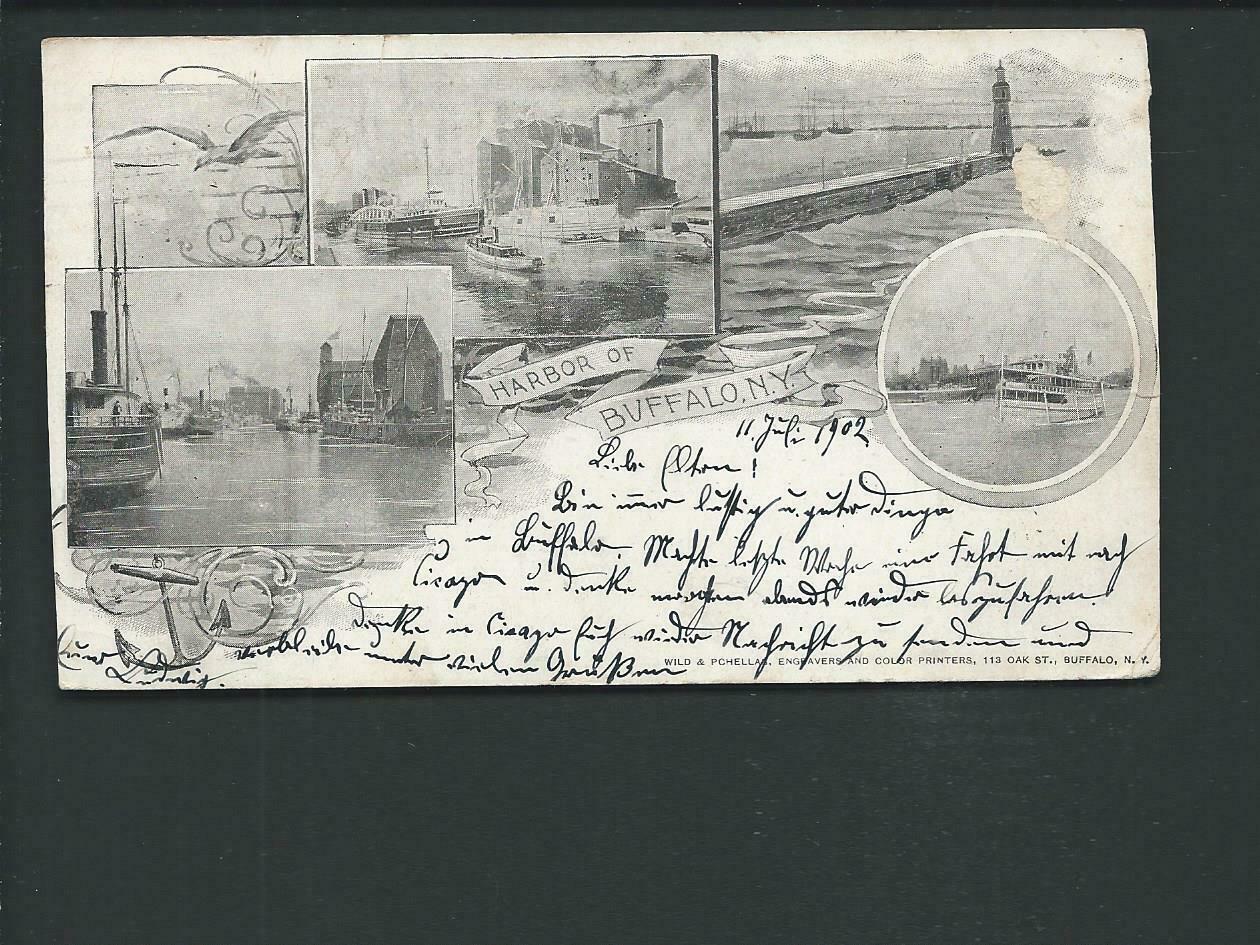 HARBOR OF
BUFFALO, N.Y.
11. Juli 1902
Liebe Eltern!
Bin immer lustig u. guter Dinge
in Buffalo. Machte letzte Woche eine Fahrt mit nach
Cicago u. denke morgen abends wieder loszufahren.
Denke in Cicago Euch wieder Nachricht zu senden und
verbleibe unter vielen Grüßen
Euer
Ludwig.
WILD & PCHELLAS, ENGRAVERS AND COLOR PRINTERS, 113 OAK ST., BUFFALO, N. Y.